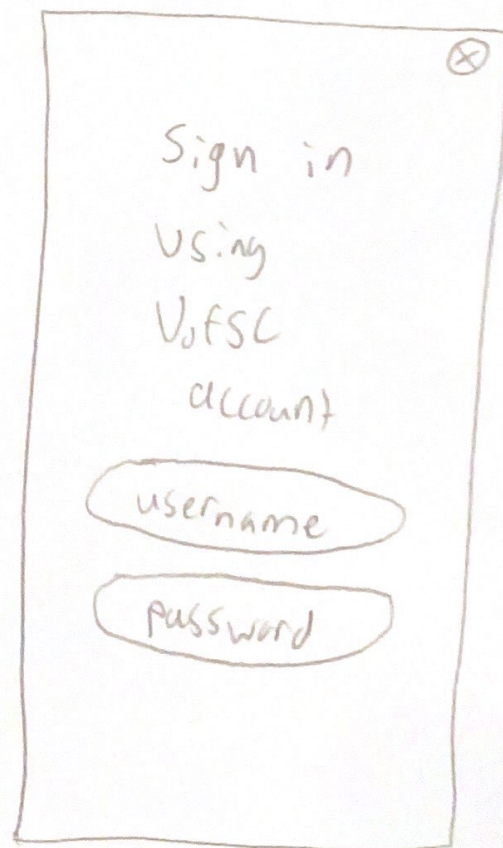 Sign in
Using
UofSC
account
username
password